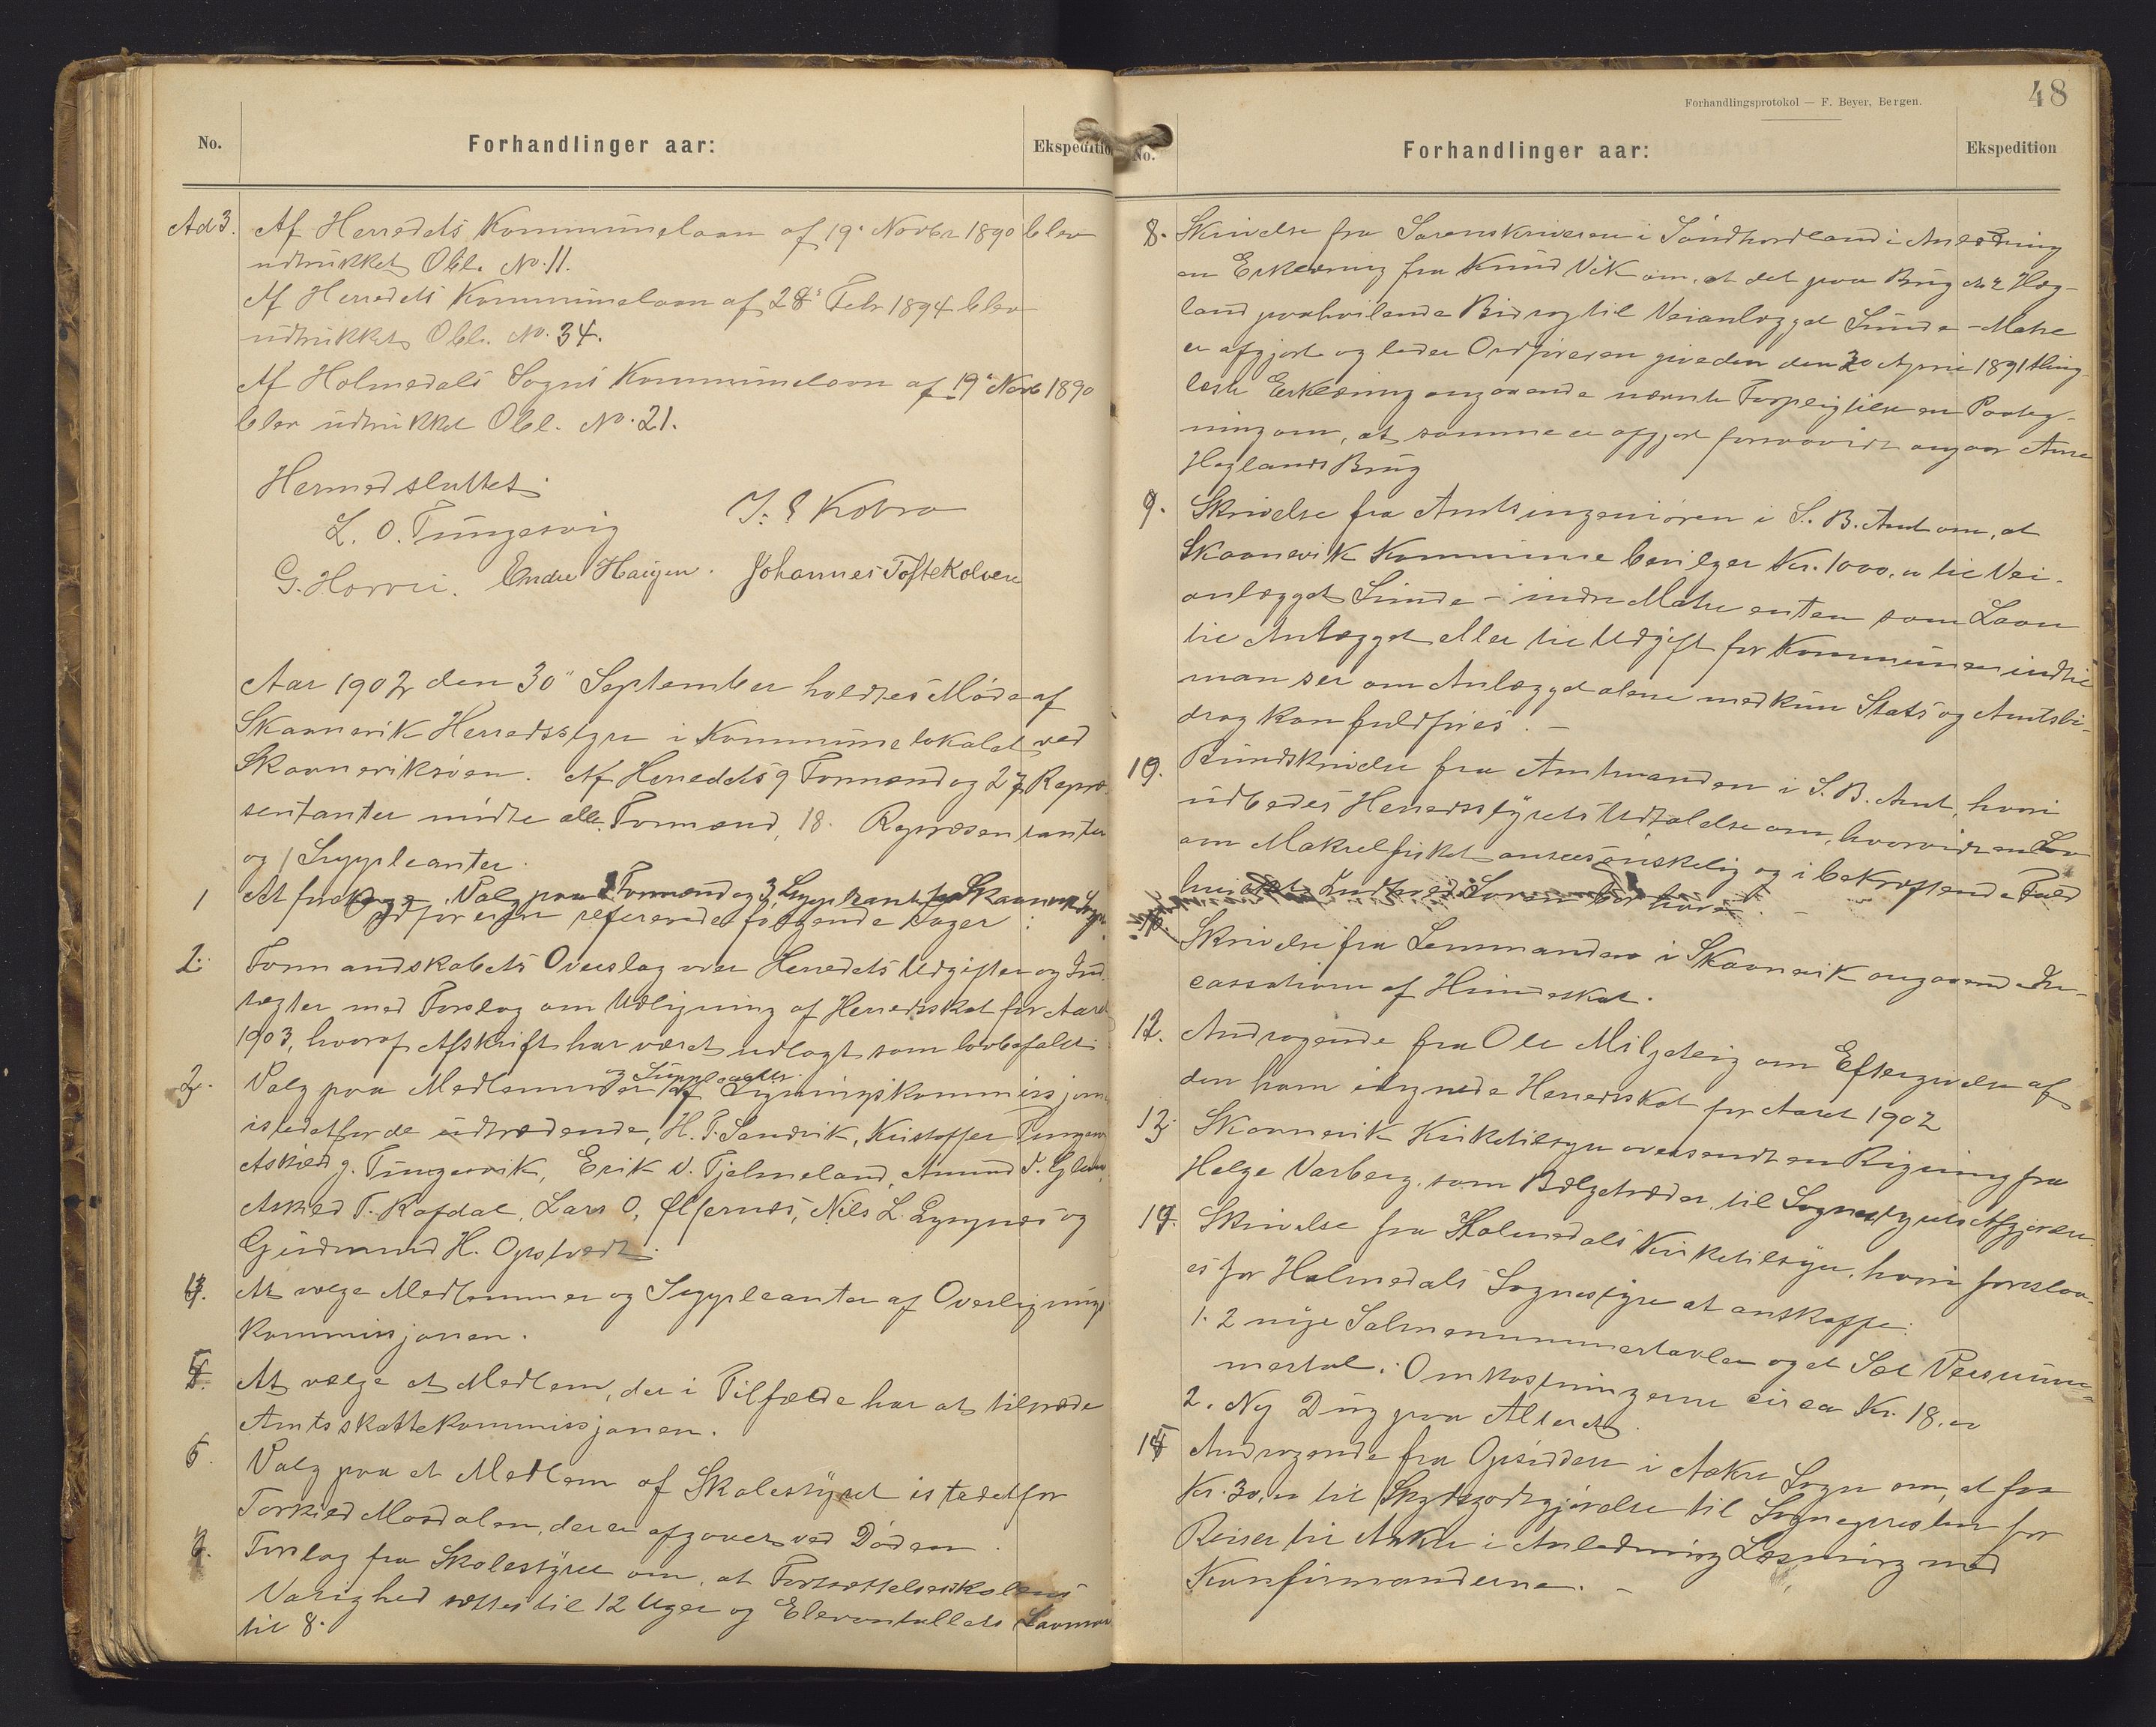 No.
Forhandlinger aar:
Ekspedition
Ad 3. Af Herredets Kommunelaan af 19. Novbr 1890 blev
udtrukket Obl. No. 11.
Af Herredets Kommunelaan af 28s Febr 1894 blev
udtrukket Obl. No. 34.
Af Holmedals Sogns Kommunelaan af 19s Novb 1890
blev udtrukket Obl. No. 21.
Hermed sluttet.
L. O. Tungesvig
G. Horvei. Endre Haugen. Johannes Toftekalven
Aar 1902 den 30" September holdtes Møde af
Skaanevik Herredsstyre i Kommunelokalet ved
Skaaneviksøen. Af Herredets 9 Formænd og 27 Repræ-
sentanter mødte alle Formænd, 18 Repræsentanter
og 1 Suppleanter.
1 At foretage Valg paa Formænd og 3 Suppleant for Skaanevik Sogn
Ordføreren refererede følgende Sager:
2. Formandskabets Overslag over Herredets Udgifter og Ind-
tægter med Forslag om Udligning af Herredsskat for Aaret
1903, hvoraf Afskrift har været udlagt som lovbefalet.
3. Valg paa Medlemmer og Suppleanter af Ligningskommissjonen
istedetfor de udtrædende, H. T. Sandvik, Kristoffer Tungesvik
Askild G. Tungesvik, Erik N. Fjelmeland, Amund T.
Askild T. Rafdal, Lars O. Ølfernes, Nils L. Lyngnes og
Gudmund H. Opstvedt.
4. At vælge Medlemmer og Suppleanter af Overlignings-
kommissjonen.
5. At vælge et Medlem, der i Tilfælde har at tiltræde
Amtsskattekommissjonen.
6. Valg paa et Medlem af Skolestyret istedetfor
Torkild Mosdalen, der er afgaaet ved Døden.
7. Forslag fra Skolestyret om, at Fortsættelsesskolens
Varighed sættes til 12 Uger og Elevantallets
til 8.
Forhandlingsprotokol — F. Beyer, Bergen.
48
No.
Forhandlinger aar:
Ekspedition
8. Skrivelse fra Sorenskriveren i Søndhordland i Anledning
en Erklæring fra Knud Vik om, at det paa Brug No 2 Høg-
land paahvilende Bidrag til Veianlægget Sunde - Matre
er afgjort og beder Ordføreren give den den 30 April 1891 thing-
læste Erklæring angaaende nævnte Forpligtelse en Paateg-
ning om, at samme er afgjort forsaavidt angaar Arne
Høglands Brug
9. Skrivelse fra Amtsingeniøren i S. B. Amt om, at
Skaanevik Kommune bevilger Kr. 1000.00 til Vei-
anlægget Sunde - indre Matre enten som Laan
til Anlægget eller til Udgift for Kommunen indtil
man ser om Anlægget alene med kun Stats og Amtsbi-
drag kan fuldføres. —
10. Rundskrivelse fra Amtmanden i S. B. Amt, hvori
udbedes Herredsstyrets Udtalelse om, hvorvidt en Lov
om Makrelfisket ansees ønskelig og i bekræftende Fald
hvilket Indhold Loven bør have. —
11. Skrivelse fra Lensmanden i Skaanevik angaaende In-
cassation af Hundeskat.
12. Andragende fra Ole Milzeteig om Eftergivelse af
den ham ilignede Herredsskat for Aaret 1902
13. Skaanevik Kirketilsyn oversendt en Regning fra
Helge Varberg, som Bælgetræder, til Sognestyrets Afgjørelse.
14. Skrivelse fra Holmedals Kirketilsyn, hvori foreslaa-
es for Holmedals Sognestyre at anskaffe:
1. 2 nye Salmenummertavler og et Sæt Versnum-
mertal. Omkostningerne circa Kr. 18.00
2. Ny Dug paa Alteret.
15 Andragende fra Opsiddere i Aakre Sogn om, at faa
Kr. 30.00 til Skydsgodtgjørelse til Sognepresten for
Reiser til Aakre i Anledning Læsning med
Konfirmanderne. —